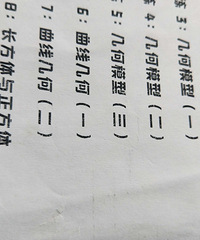 练 3：几何模型（一）
练 4：几何模型（二）
5：几何模型（三）
6：曲线几何（一）
7：曲线几何（二）
8：长方体与正方体